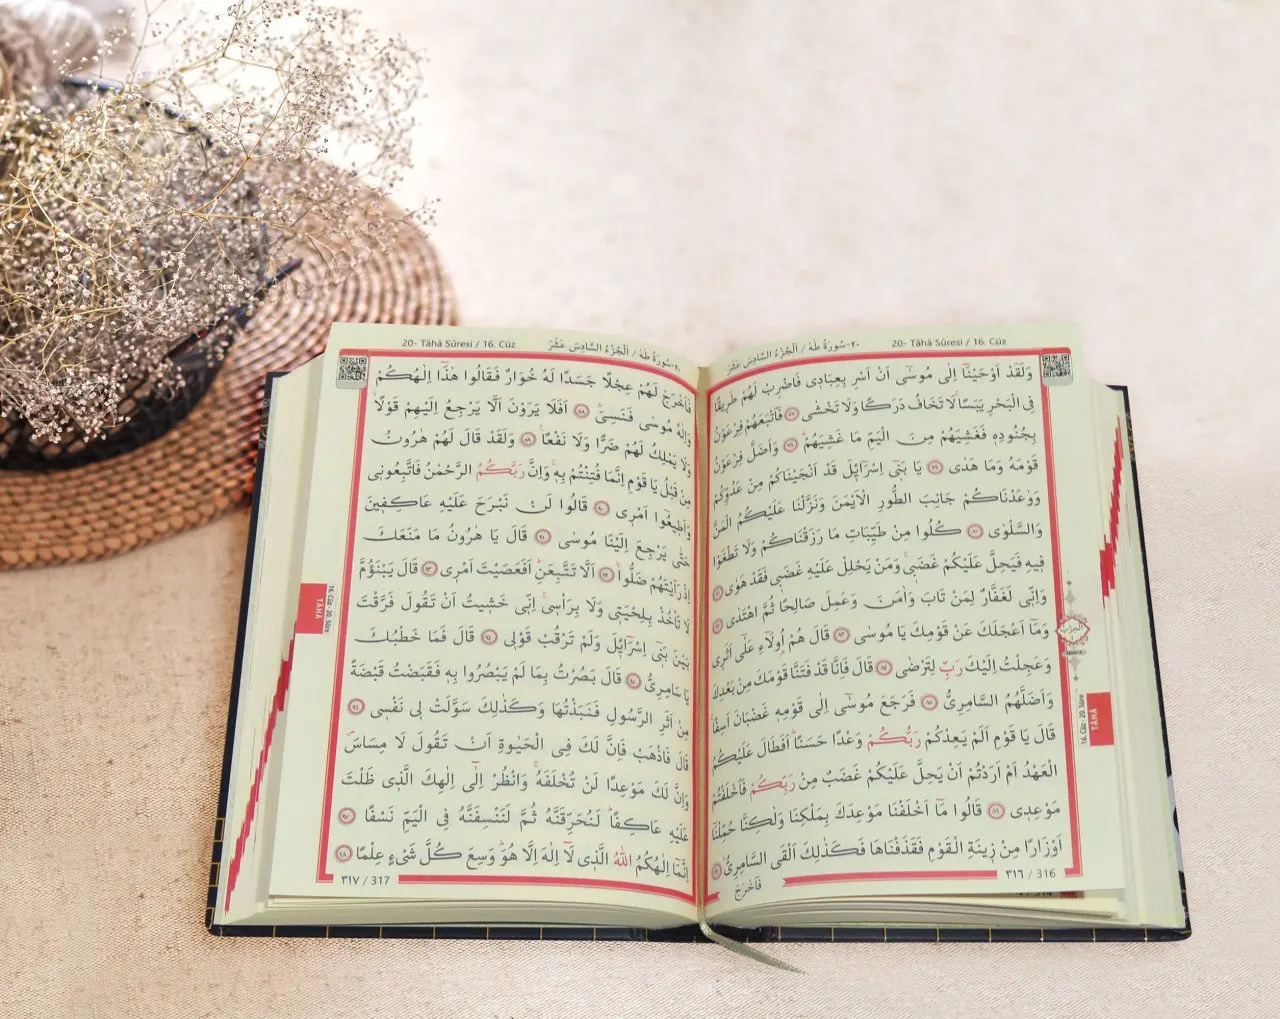 20- Tâhâ Sûresi / 16. Cüz
٢٠-سُورَةُ طٰهٰ / اَلْجُزْءُ السَّادِسَ عَشَرَ
وَلَقَدْ اَوْحَيْنَٓا اِلٰى مُوسٰٓى اَنْ اَسْرِ بِعِبَادِى فَاضْرِبْ لَهُمْ طَرِيقًا
فِى الْبَحْرِ يَبَسًاۙ لَا تَخَافُ دَرَكًا وَلَا تَخْشٰى ٧٧ فَاَتْبَعَهُمْ فِرْعَوْنُ
بِجُنُودِهِ فَغَشِيَهُمْ مِنَ الْيَمِّ مَا غَشِيَهُمْ ٧٨ وَاَضَلَّ فِرْعَوْنُ
قَوْمَهُ وَمَا هَدٰى ٧٩ يَا بَنِٓى اِسْرَٓائِلَ قَدْ اَنْجَيْنَاكُمْ مِنْ عَدُوِّكُمْ
وَوٰعَدْنَاكُمْ جَانِبَ الطُّورِ الْاَيْمَنَ وَنَزَّلْنَا عَلَيْكُمُ الْمَنَّ
وَالسَّلْوٰى ٨٠ كُلُوا مِنْ طَيِّبَاتِ مَا رَزَقْنَاكُمْ وَلَا تَطْغَوْا
فِيهِ فَيَحِلَّ عَلَيْكُمْ غَضَبِى وَمَنْ يَحْلِلْ عَلَيْهِ غَضَبِى فَقَدْ هَوٰى ٨١
وَاِنِّى لَغَفَّارٌ لِمَنْ تَابَ وَاٰمَنَ وَعَمِلَ صَالِحًا ثُمَّ اهْتَدٰى ٨٢
وَمَٓا اَعْجَلَكَ عَنْ قَوْمِكَ يَا مُوسٰى ٨٣ قَالَ هُمْ اُو۬لَٓاءِ عَلٰٓى اَثَرِى
وَعَجِلْتُ اِلَيْكَ رَبِّ لِتَرْضٰى ٨٤ قَالَ فَاِنَّا قَدْ فَتَنَّا قَوْمَكَ مِنْ بَعْدِكَ
وَاَضَلَّهُمُ السَّامِرِىُّ ٨٥ فَرَجَعَ مُوسٰٓى اِلٰى قَوْمِهِ غَضْبَانَ اَسِفًا
قَالَ يَا قَوْمِ اَلَمْ يَعِدْكُمْ رَبُّكُمْ وَعْدًا حَسَنًا اَفَطَالَ عَلَيْكُمُ
الْعَهْدُ اَمْ اَرَدْتُمْ اَنْ يَحِلَّ عَلَيْكُمْ غَضَبٌ مِنْ رَبِّكُمْ فَاَخْلَفْتُمْ
مَوْعِدِى ٨٦ قَالُوا مَٓا اَخْلَفْنَا مَوْعِدَكَ بِمَلْكِنَا وَلٰكِنَّا حُمِّلْنَٓا
اَوْزَارًا مِنْ زِينَةِ الْقَوْمِ فَقَذَفْنَاهَا فَكَذٰلِكَ اَلْقَى السَّامِرِىُّ ٨٧
فَاَخْرَجَ
٣١٦ / 316
16. Cüz - 20. Sûre
TÂHÂ
20- Tâhâ Sûresi / 16. Cüz
٢٠-سُورَةُ طٰهٰ / اَلْجُزْءُ السَّادِسَ عَشَرَ
فَاَخْرَجَ لَهُمْ عِجْلًا جَسَدًا لَهُ خُوَارٌ فَقَالُوا هٰذَٓا اِلٰهُكُمْ
وَاِلٰهُ مُوسٰى فَنَسِىَ ٨٨ اَفَلَا يَرَوْنَ اَلَّا يَرْجِعُ اِلَيْهِمْ قَوْلًا
وَلَا يَمْلِكُ لَهُمْ ضَرًّا وَلَا نَفْعًا ٨٩ وَلَقَدْ قَالَ لَهُمْ هٰرُونُ
مِنْ قَبْلُ يَا قَوْمِ اِنَّمَا فُتِنْتُمْ بِهِ وَاِنَّ رَبَّكُمُ الرَّحْمٰنُ فَاتَّبِعُونِى
وَاَطِيعُٓوا اَمْرِى ٩٠ قَالُوا لَنْ نَبْرَحَ عَلَيْهِ عَاكِفِينَ
حَتّٰى يَرْجِعَ اِلَيْنَا مُوسٰى ٩١ قَالَ يَا هٰرُونُ مَا مَنَعَكَ
اِذْ رَاَيْتَهُمْ ضَلُّوا ٩٢ اَلَّا تَتَّبِعَنِ اَفَعَصَيْتَ اَمْرِى ٩٣ قَالَ يَبْنَؤُ۬مَّ
لَا تَأْخُذْ بِلِحْيَتِى وَلَا بِرَأْسِى اِنِّى خَشِيتُ اَنْ تَقُولَ فَرَّقْتَ
بَيْنَ بَنِٓى اِسْرَٓائِلَ وَلَمْ تَرْقُبْ قَوْلِى ٩٤ قَالَ فَمَا خَطْبُكَ
يَا سَامِرِىُّ ٩٥ قَالَ بَصُرْتُ بِمَا لَمْ يَبْصُرُوا بِهِ فَقَبَضْتُ قَبْضَةً
مِنْ اَثَرِ الرَّسُولِ فَنَبَذْتُهَا وَكَذٰلِكَ سَوَّلَتْ لِى نَفْسِى ٩٦
قَالَ فَاذْهَبْ فَاِنَّ لَكَ فِى الْحَيٰوةِ اَنْ تَقُولَ لَا مِسَاسَ
وَاِنَّ لَكَ مَوْعِدًا لَنْ تُخْلَفَهُ وَانْظُرْ اِلٰٓى اِلٰهِكَ الَّذِى ظَلْتَ
عَلَيْهِ عَاكِفًا لَنُحَرِّقَنَّهُ ثُمَّ لَنَنْسِفَنَّهُ فِى الْيَمِّ نَسْفًا ٩٧
اِنَّمَٓا اِلٰهُكُمُ اللّٰهُ الَّذِى لَٓا اِلٰهَ اِلَّا هُوَ وَسِعَ كُلَّ شَىْءٍ عِلْمًا ٩٨
٣١٧ / 317
16. Cüz - 20. Sûre
TÂHÂ